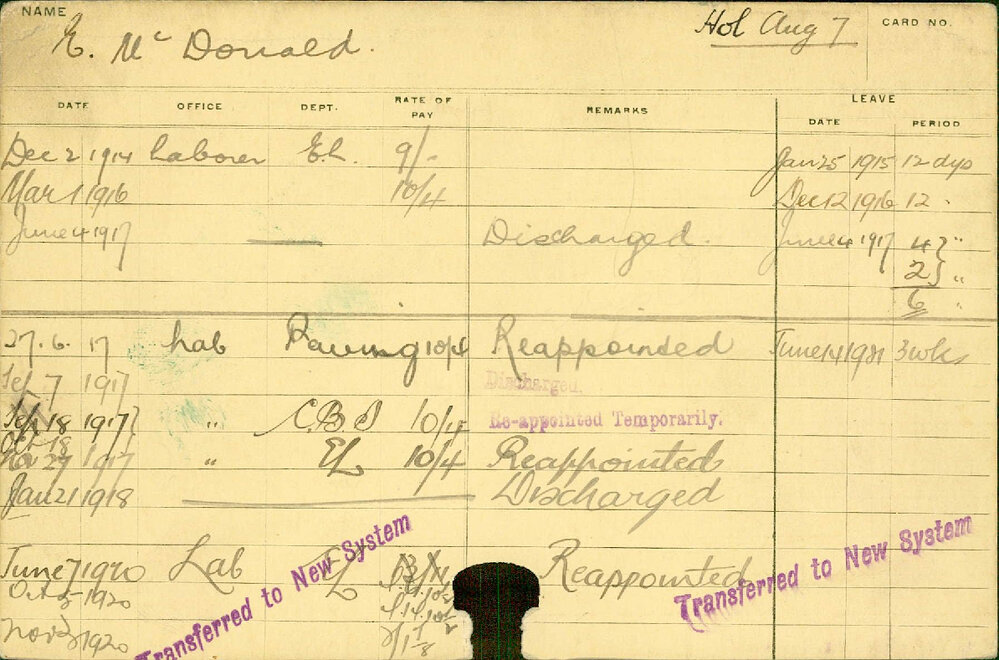 NAME E. Mc Donald. Hol Aug 7 CARD NO.
DATE OFFICE DEPT. RATE OF PAY REMARKS LEAVE DATE PERIOD
Dec 2 1914 Laborer EL. 9/- Jan 25 1915 12 dys
Mar 1 1916 10/4 Dec 12 1916 12 "
June 4 1917 Discharged. June 4 1917 4 "
2 "
6 "
27. 6. 17 Lab Paving 10/4 Reappointed June 14 1921 3 wks
Sep 7 1917 Discharged.
Sep 18 1917 " C.B.S 10/4 Re-appointed Temporarily.
Oct 18
Nov 27 1917 " EL 10/4 Reappointed
Jan 21 1918 Discharged
June 7 1920 Lab EL Reappointed
Oct 5 1920
Nov 1920
Transferred to New System
Transferred to New System